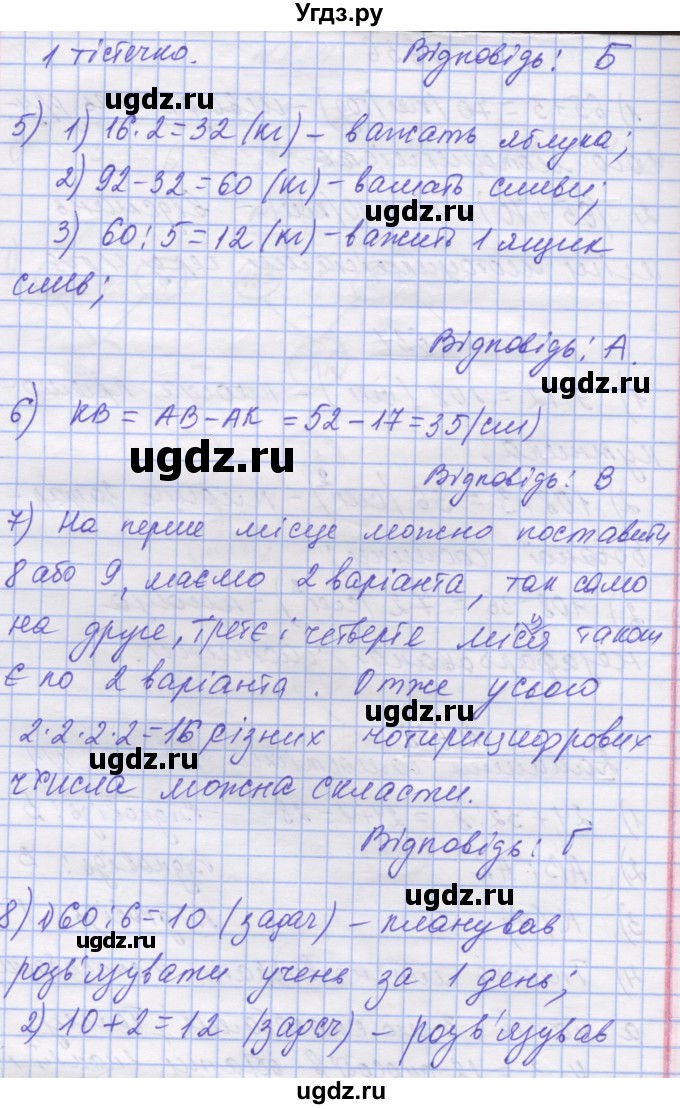 Угдз.ру
1 тістечко. Відповідь: Б
ugdz.ru
5) 1) 16·2=32 (кг) – важать яблука;
2) 92-32=60 (кг) – важать сливи;
ugdz.ru
3) 60:5=12 (кг) – важить 1 ящик
слив;
Відповідь: А.
ugdz.ru
6) KB = AB-AK = 52-17=35 (см)
ugdz.ru
Відповідь: В
7) На перше місце можно поставити
8 або 9, маємо 2 варіанта, так само
ugdz.ru
на друге, третє і четверте місця також
є по 2 варіанта. Отже усього
ugdz.ru
2·2·2·2=16 різних чотирицифрових
ugdz.ru
числа можна скласти.
Відповідь: Г
ugdz.ru
8) 1) 60:6=10 (задач) – планував
розв'язувати учень за 1 день;
ugdz.ru
2) 10+2=12 (задач) – розв'язував
ugdz.ru